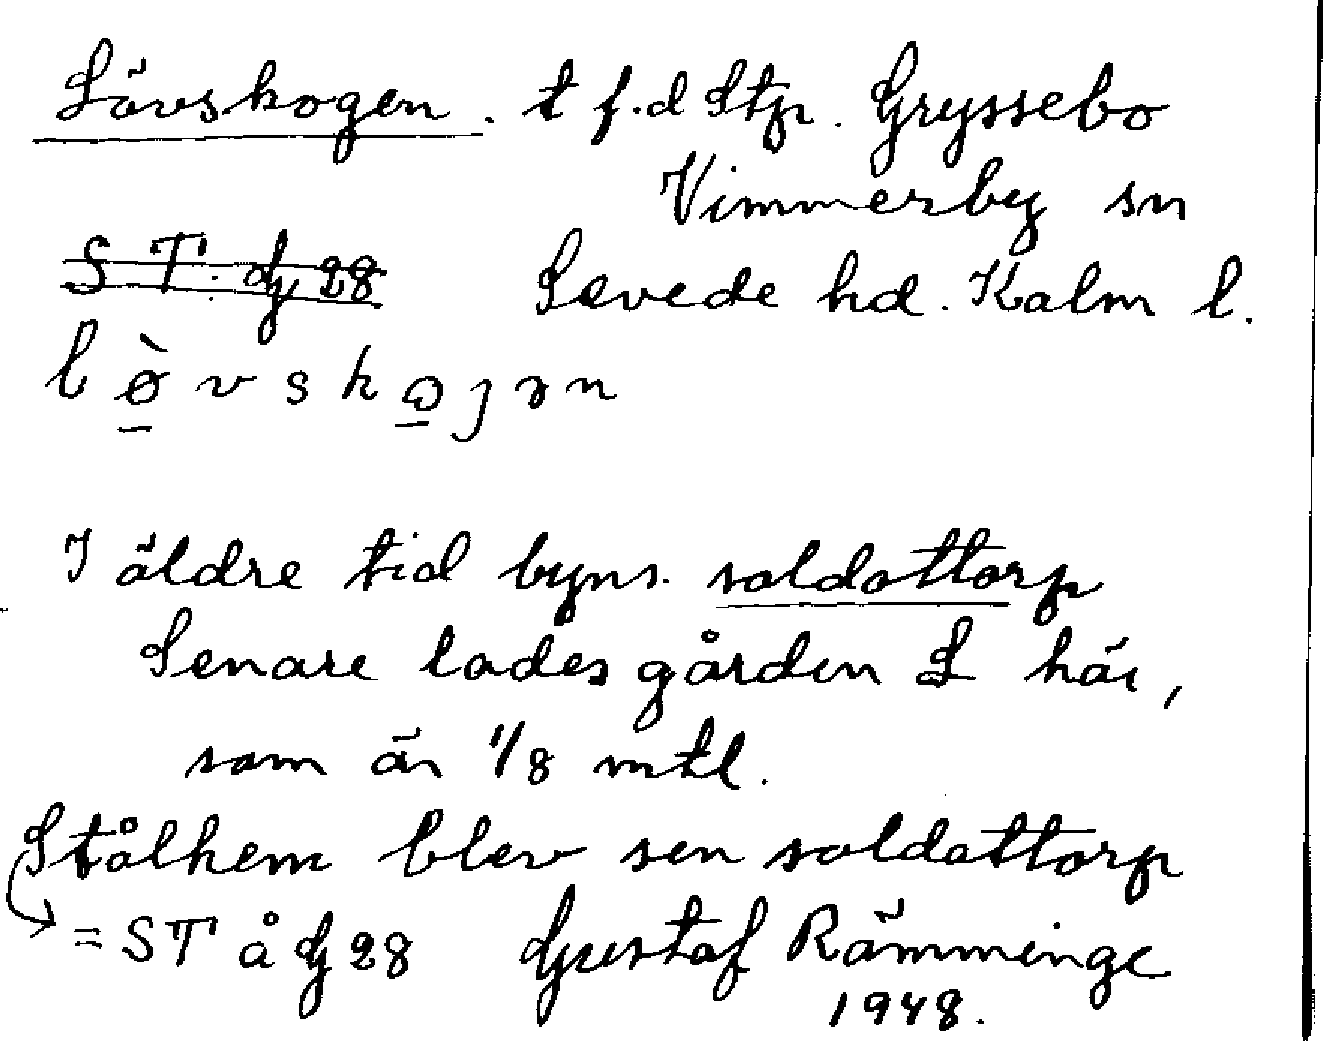 Lövskogen. t f.d Stp. Gryssebo
Vimmerby sn
S T. G 28 Sevede hd. Kalm l.
l ø̀ v s k ꞷ j ə n
I äldre tid byns. soldattorp
Senare lades gården L här,
som är 1/8 mtl.
Stålhem blev sen soldattorp
= ST å G 28 Gustaf Rämminge
1948.